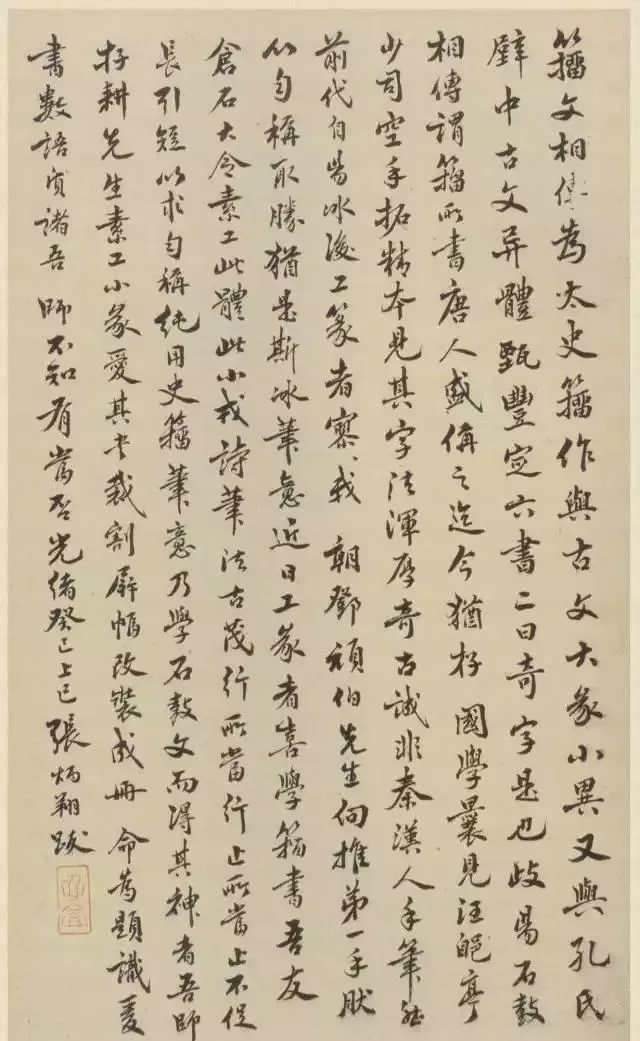 籀文相傳為太史籀作與古文大篆小異又與孔氏
壁中古文异體甄豐定六書二曰奇字是也歧陽石鼓
相傳謂籀所書唐人盛稱之迄今猶存國學曩見汪郎亭
少司空手拓精本見其字法渾厚奇古誠非秦漢人手筆然
前代自陽冰後工篆者寥寥我朝鄧頑伯先生向推第一手肰
以勻稱取勝猶是斯冰筆意近日工篆者喜學籀書吾友
倉石大令素工此體此小戎詩筆法古茂行所當行止所當止不促
長引短以求勻稱純用史籀筆意乃學石鼓文而得其神者吾師
存耕先生素工小篆愛其書裁割屏幅改裝成冊命為題識爰
書數語質諸吾師不知有當否光緒癸巳上巳張炳翔跋